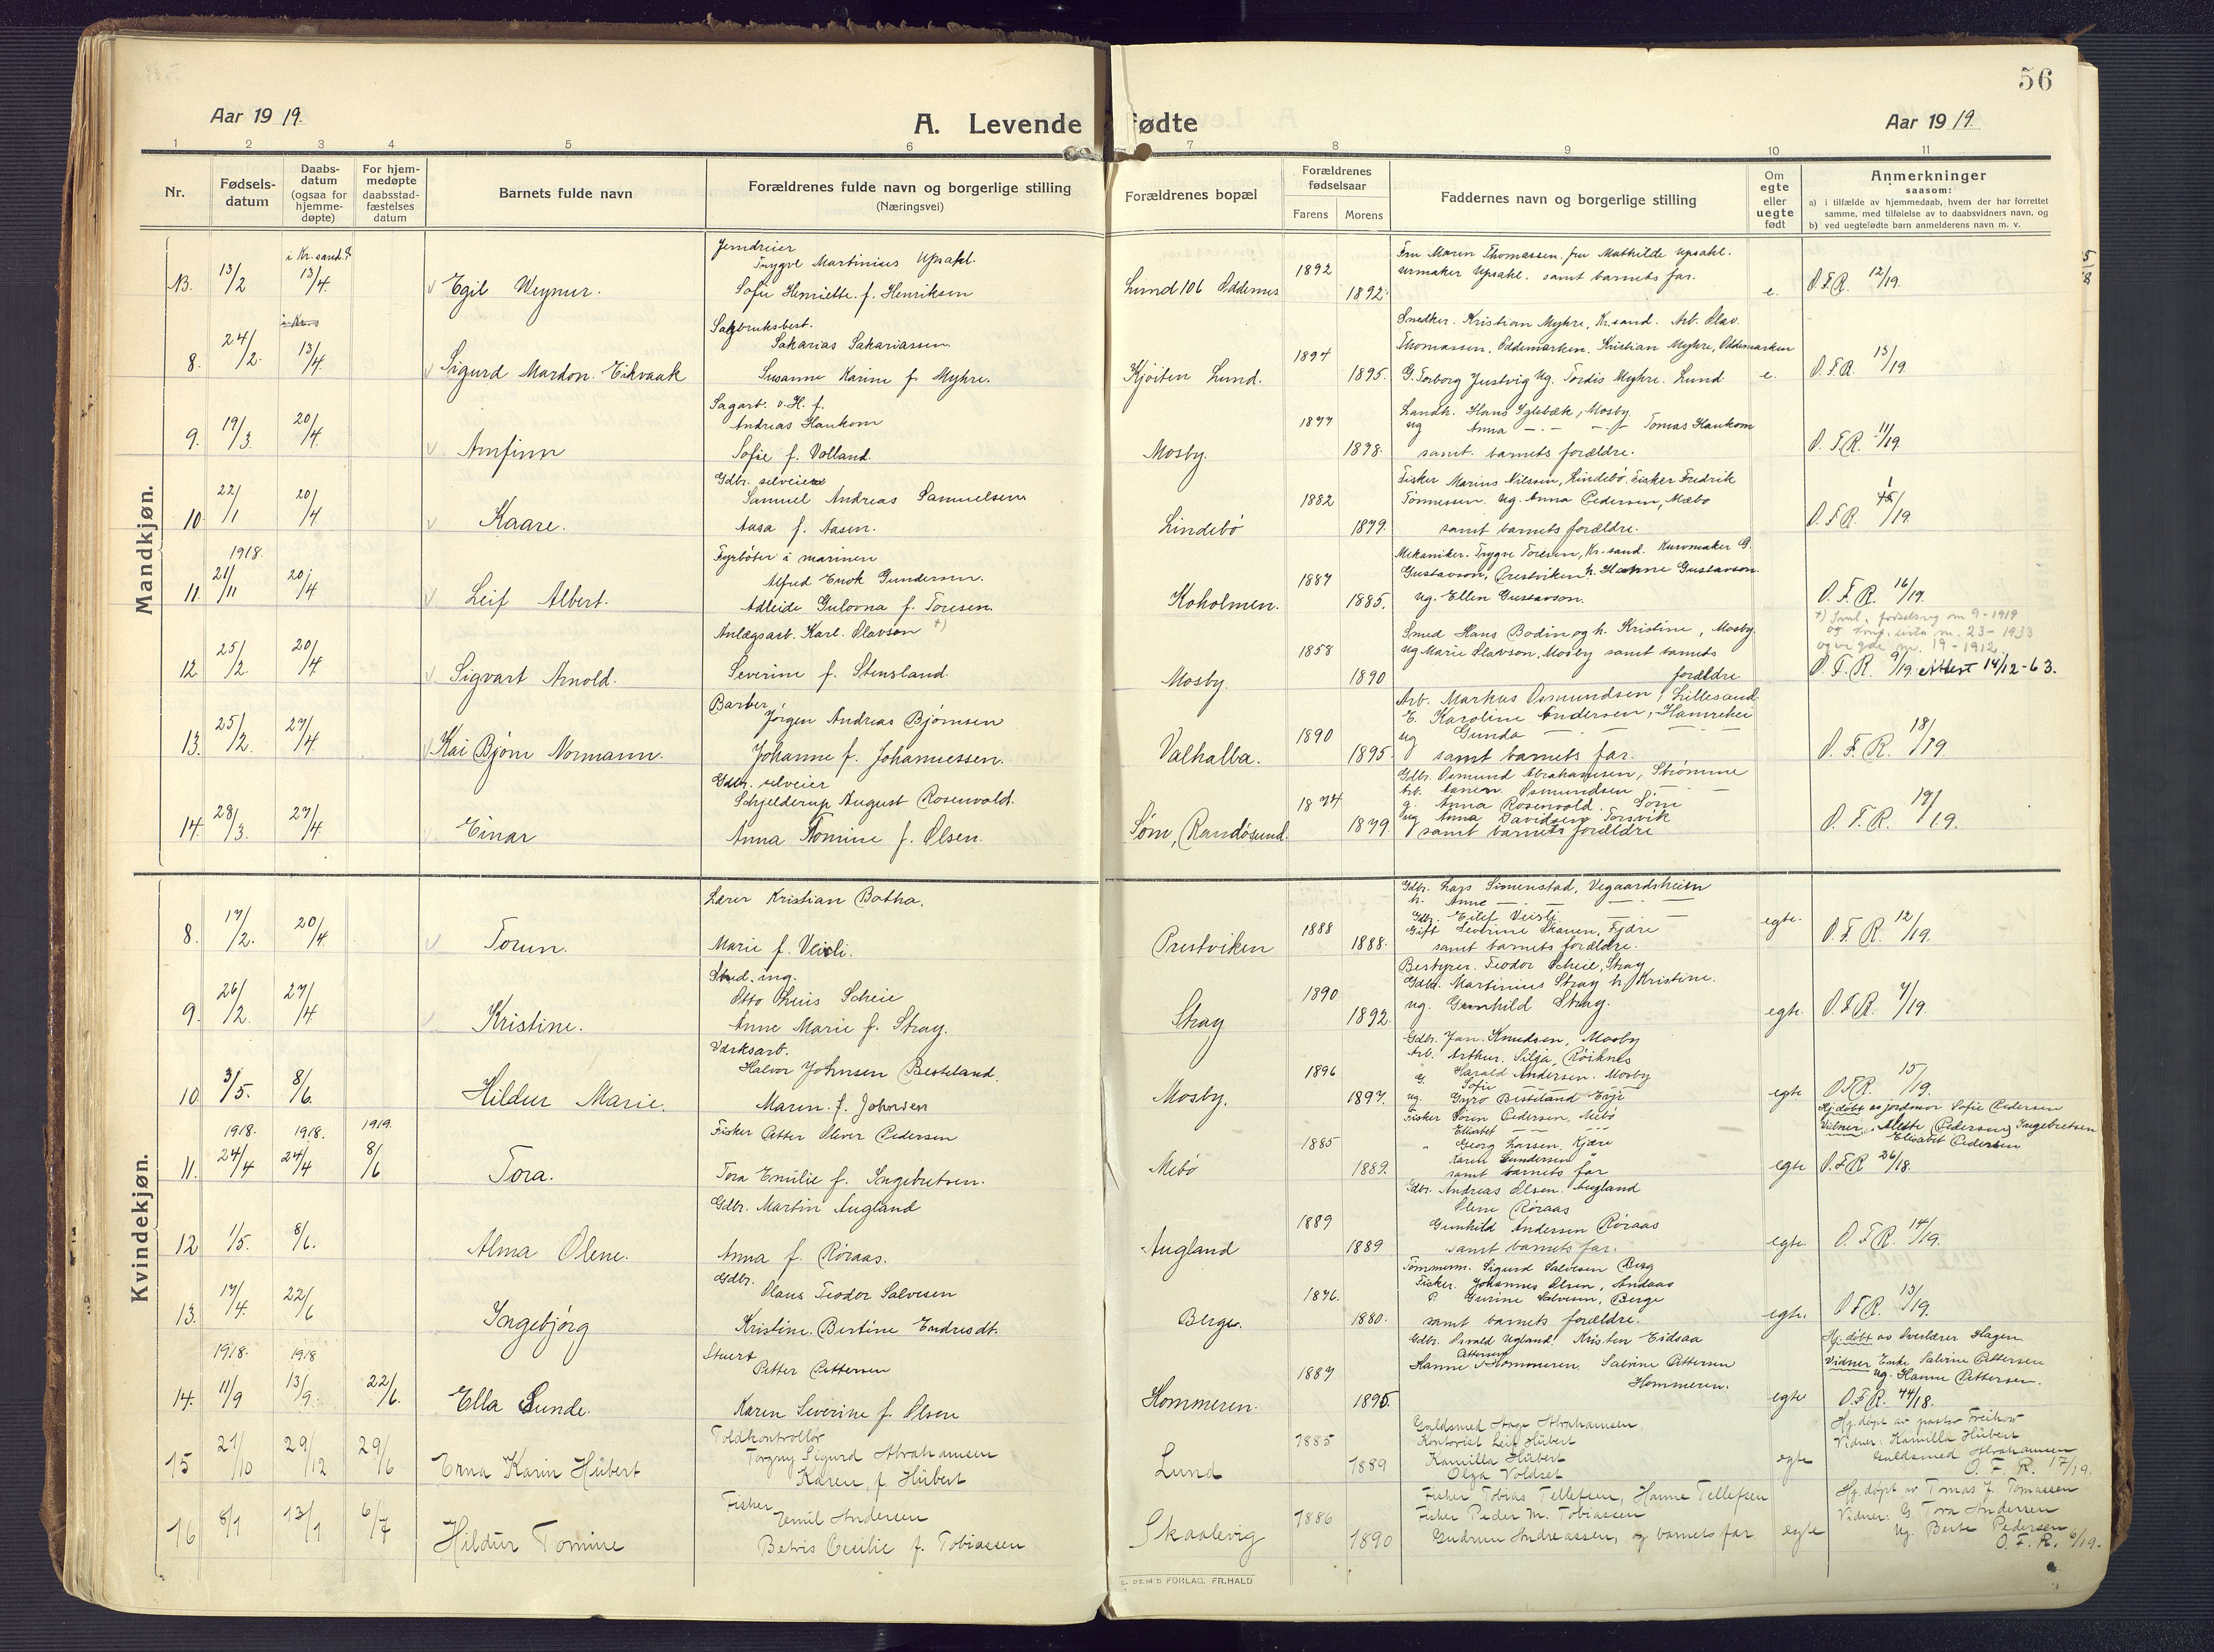 56
Aar 1919.
A. Levende Fødte
Aar 1919.
1 2 3 4 5 6 7 8 9 10 11
Nr.
Fødsels-
datum
Daabs-
datum
(ogsaa for
hjemme-
døpte)
For hjem-
medøpte
daabsstad-
fæstelses
datum
Barnets fulde navn
Forældrenes fulde navn og borgerlige stilling
(Næringsvei)
Forældrenes bopæl
Forældrenes
fødselsaar
Farens Morens
Faddernes navn og borgerlige stilling
Om
egte
eller
uegte
født
Anmerkninger
saasom:
a) i tilfælde av hjemmedaab, hvem der har forrettet
samme, med tilføielse av to daabsvidners navn, og
b) ved uegtefødte barn anmelderens navn m. v.
Mandkjøn.
i Kr.sand.
13/2 13/4 Egil
Trygve Martinius Upsahl.
Sofie Henriette f. Henriksen
Lund 106 Oddernes 1892 1892
Fru Maren Thomassen. fru Mathilde Upsahl.
urmaker Upsahl. samt barnets far.
e. O.F.R. 12/19.
8. 24/2. 13/4. Sigurd Mardon. Eikvaak
Sagbruksbest.
Sakarias Sakariassen
Susanne Karine f. Myhre.
Kjøiten Lund. 1894 1895.
Snedker. Kristian Myhre, Kr.sand. Arb. Olav.
Thomassen, Oddemarken. Kristian Myhre, Oddemarken
G. Torborg Justvig Ug. Tordis Myhre. Lund.
e. O.F.R. 13/19.
9. 19/3. 20/4. Arnfinn
Sagarb. v. H. f.
Andreas Haukom
Sofie f. Volland.
Mosby. 1877 1878.
Landh. Hans Iglebæk, Mosby.
ug Anna — . — Tomas Haukom
samt. barnets forældre.
O.F.R. 11/19.
10. 22/1 20/4 Kaare.
Gdbr. selveier
Samuel Andreas Samuelsen
Aasa f. Aasen.
Lindebö 1882 1879.
Fisker Marius Nilssen, Lindebö. Fisker Fredrik
Tönnessen. Ug. Anna Pedersen, Mæbö
samt barnets forældre.
O.F.R.
1918.
11. 21/11 20/4 Leif Albert.
Fyrböter i marinen
Alfred Enok Gundersen.
Adleide Gulovna f. Toresen.
Koholmen. 1887 1885.
Mekaniker. Trygve Toresen, Kr.sand. Kurvmaker G.
Gustavson, Prestviken h. Hanne Gustavson
Ug. Ellen Gustavson.
O.F.R. 16/19.
12. 25/2. 20/4 Sigvart Arnold.
Anlægsarb. Karl. Olavson +)
Severine f. Stensland.
Mosby. 1858 1890
Smed Hans Bodin og h. Kristine, Mosby.
ug Marie Olavson, Mosby samt barnets
forældre
+) Innl. fødselsreg nr 9-1919
og konf. liste nr. 23-1933
og vigde nr. 19-1912
O.F.R. 9/19. Attest 14/12-63.
13. 25/2. 27/4. Kai Bjørn Normann.
Barber
Jörgen Andreas Bjørnsen
Johanne f. Johannessen.
Valhalla. 1890 1895.
Arb. Markus Osmundsen, Lillesand
E. Karoline Andersen, Hamreheii
ug Gunda — — —
samt barnets far.
O.F.R. 18/19.
14. 28/3. 27/4 Einar
Gdbr. selveier
Schjelderup August Rosenvold.
Anna Tomine f. Olsen.
Søm, (Randösund. 1874 1879
Gdbr. Osmund Abrahamsen, Strömme
Osmundsen — —
g. Anna Rosenvold. Søm
ug Anna Davidsen Torsvik
samt barnets forældre
O.F.R. 19/19.
Kvindekjøn.
8. 17/2. 20/4. Torun.
Lærer Kristian Botha.
Marie f. Veisli.
Prestviken 1888 1888.
Gdbr. Lars Simenstad, Vegaardsheien
h. Anne — — —
Gdbr. Eilef Veisli — —
Gift Severine Skauen, Fjære
samt barnets forældre.
egte. O.F.R. 12/19.
9. 26/2. 27/4 Kristine.
Stud. ing.
Otto Luis Scheie
Anne Marie f. Stray.
Stray 1890 1892.
Bestyrer. Teodor Scheie, Stray
Gdbr. Martinius Stray h. Kristine.
ug. Gunhild Stray.
egte. O.F.R. 7/19.
10. 3/5. 8/6. Hildur Marie.
Værksarb.
Halvor Johnsen Besteland.
Maren. f. Johnsen
Mosby. 1896 1897.
Gdbr. Jan. Knudsen, Mosby
Arb. Arthur. Silja, Röiknes
Harald Andersen. Mosby
G. Sofie — —
ug. Gyro Besteland Evje
egte O.F.R. 15/19.
1918. 1918. 1919.
11. 24/4 24/4 8/6 Tora.
Fisker Petter Oliver Pedersen
Tora Emilie f. Ingebretsen.
Mebö 1885 1889.
Fisker Sören Pedersen, Mebö
Elisabet — —
Georg Larsen, Kjære
Karen Gundersen "
samt barnets far
egte
Hj. döbt av jordmor Sofie Pedersen
Vidner. Alette (Pedersen) Ingebretsen
Elisabet Pedersen
O.F.R 26/18.
12 1/5. 8/6. Alma Olene.
Gdbr. Martin Augland
Anna f. Röraas.
Augland 1889 1889
Gdbr. Andreas Olsen. Augland
Olene Röraas
Gunhild Andersen Röraas
samt barnets far.
egte. O.F.R. 14/19.
13. 17/4. 22/6 Ingebjörg
Gdbr.
Olaus Teodor Salvesen
Kristine. Bertine Endresdt.
Berge. 1876. 1880.
Tömmerm. Sigurd Salvesen Berg
Fisker. Johannes Olsen, Andaas
P. Gurine Salvesen, Berge
samt barnets forældre.
egte. O.F.R. 13/19.
1918. 1918
14. 11/9 13/9. 22/6. Ella Lunde.
Stuert
Petter Pettersen
Karen Severine f. Olsen
Hommeren. 1887 1895.
Gdbr. Osvald Ugland. Kristen Eidsaa
Pettersen
Hanne Hommeren. Salvine Pettersen
Hommeren.
egte
Hj. döbt av Overlærer Hagen.
Vidner Enke Salvine Pettersen
ug. Hanne Pettersen.
O.F.R. 44/18.
15 21/10 29/12 29/6 Erna Karin Hübert
Toldkontrollør
Torgny Sigurd Abrahamsen
Karen f. Hübert
Lund 1885 1889
Guldsmed Aage Abrahamsen,
Kontorist Leif Hübert
Kamilla Hübert
Olga Voldset
egte
Hj. døpt av pastor Freihow
Vidner: Kamilla Hübert
Guldsmed Abrahamsen
O.F.R. 17/19.
16 8/1 13/1 6/7 Hildur Tomine
Fisker
Emil Andersen
Betris Cecilie f. Tobiassen
Skaalevig 1886 1890
Fisker Tobias Tellefsen, Hanne Tellefsen
Fisker Peder M. Tobiassen
Gudrun Andreassen, og barnets far
egte
Hj. døpt av Tomas J. Tomassen
Vidner: G. Tora Andersen
Ug. Berte Pedersen
O.F.R. 6/19.
FORLAG. FR.HALD